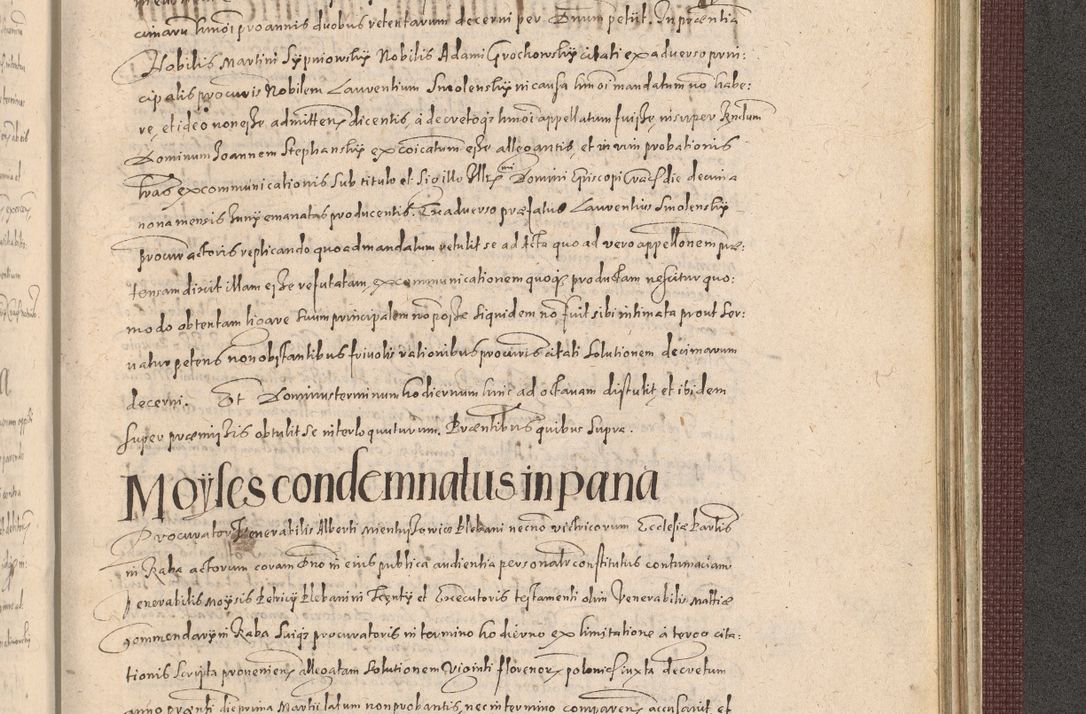 cimarũ hmõi pro annis duobus retentarum decerni per Dnum petijt. In præntia
Nobilis Martini Sypniowskij Nobilis Adami Grochowskij citati ex adverso prni:
cipalis procuris Nobilem Laurentium Smolenskij in causa hmõi mandatum nõ habe:
re, et ideo non eſſe admitten dicentis, a decretoq hmõi appellatum fuiſſe, insuper Andum
Dominum Joannem Stephanskij excõicatum eſſe allegantis, et in vim probationis
lras excommunicationis sub titulo et Sigillo Illrmi Domini Epiſcopi Crac die decima
nona mensis Junij emanatas producentis. Ex adverso præfatus Laurentius Smolenskij
procur actoris replicando quo ad mandatum retulit se ad Acta quo ad vero appellõnem præ:
tensam dixit illam eſſe refutatam, excommunicationem quoq productam nescitur quo:
modo obtentam ligare suum principalem nõ poſſe siquidem nõ fuit sibi intimata prout ser:
uatur petens non obstantibus frivolis rationibus procuris citati Solutionem decimarum
decerni. Et Dominus terminum hodiernum hinc ad octavam distulit et ibidem
super præmiſſis obtulit se interloquuturum. Præntibus quibus supra.
Moyſes condemnatus in pana
Procurator Venerabilis Alberti Mientuſſowicz Plebani necnõ victricorum Ecclesiæ Parlis
in Raba actorum coram Dno in eius publica audientia personalr constitutus contumaciam
Venerabilis Moysis Petricij Plebani in Tczenty et Executoris testamenti olim Venerabilis Mattiæ
Commendarij in Raba Suiq procuratoris in termino hodierno ex limitatione a tergo cita:
tionis scripta provenien allegatam Solutionem Viginti florenor polonics iuxta decretum
anno prænti die prima Martij latum non probantis, nec in termino comparen accusavit et